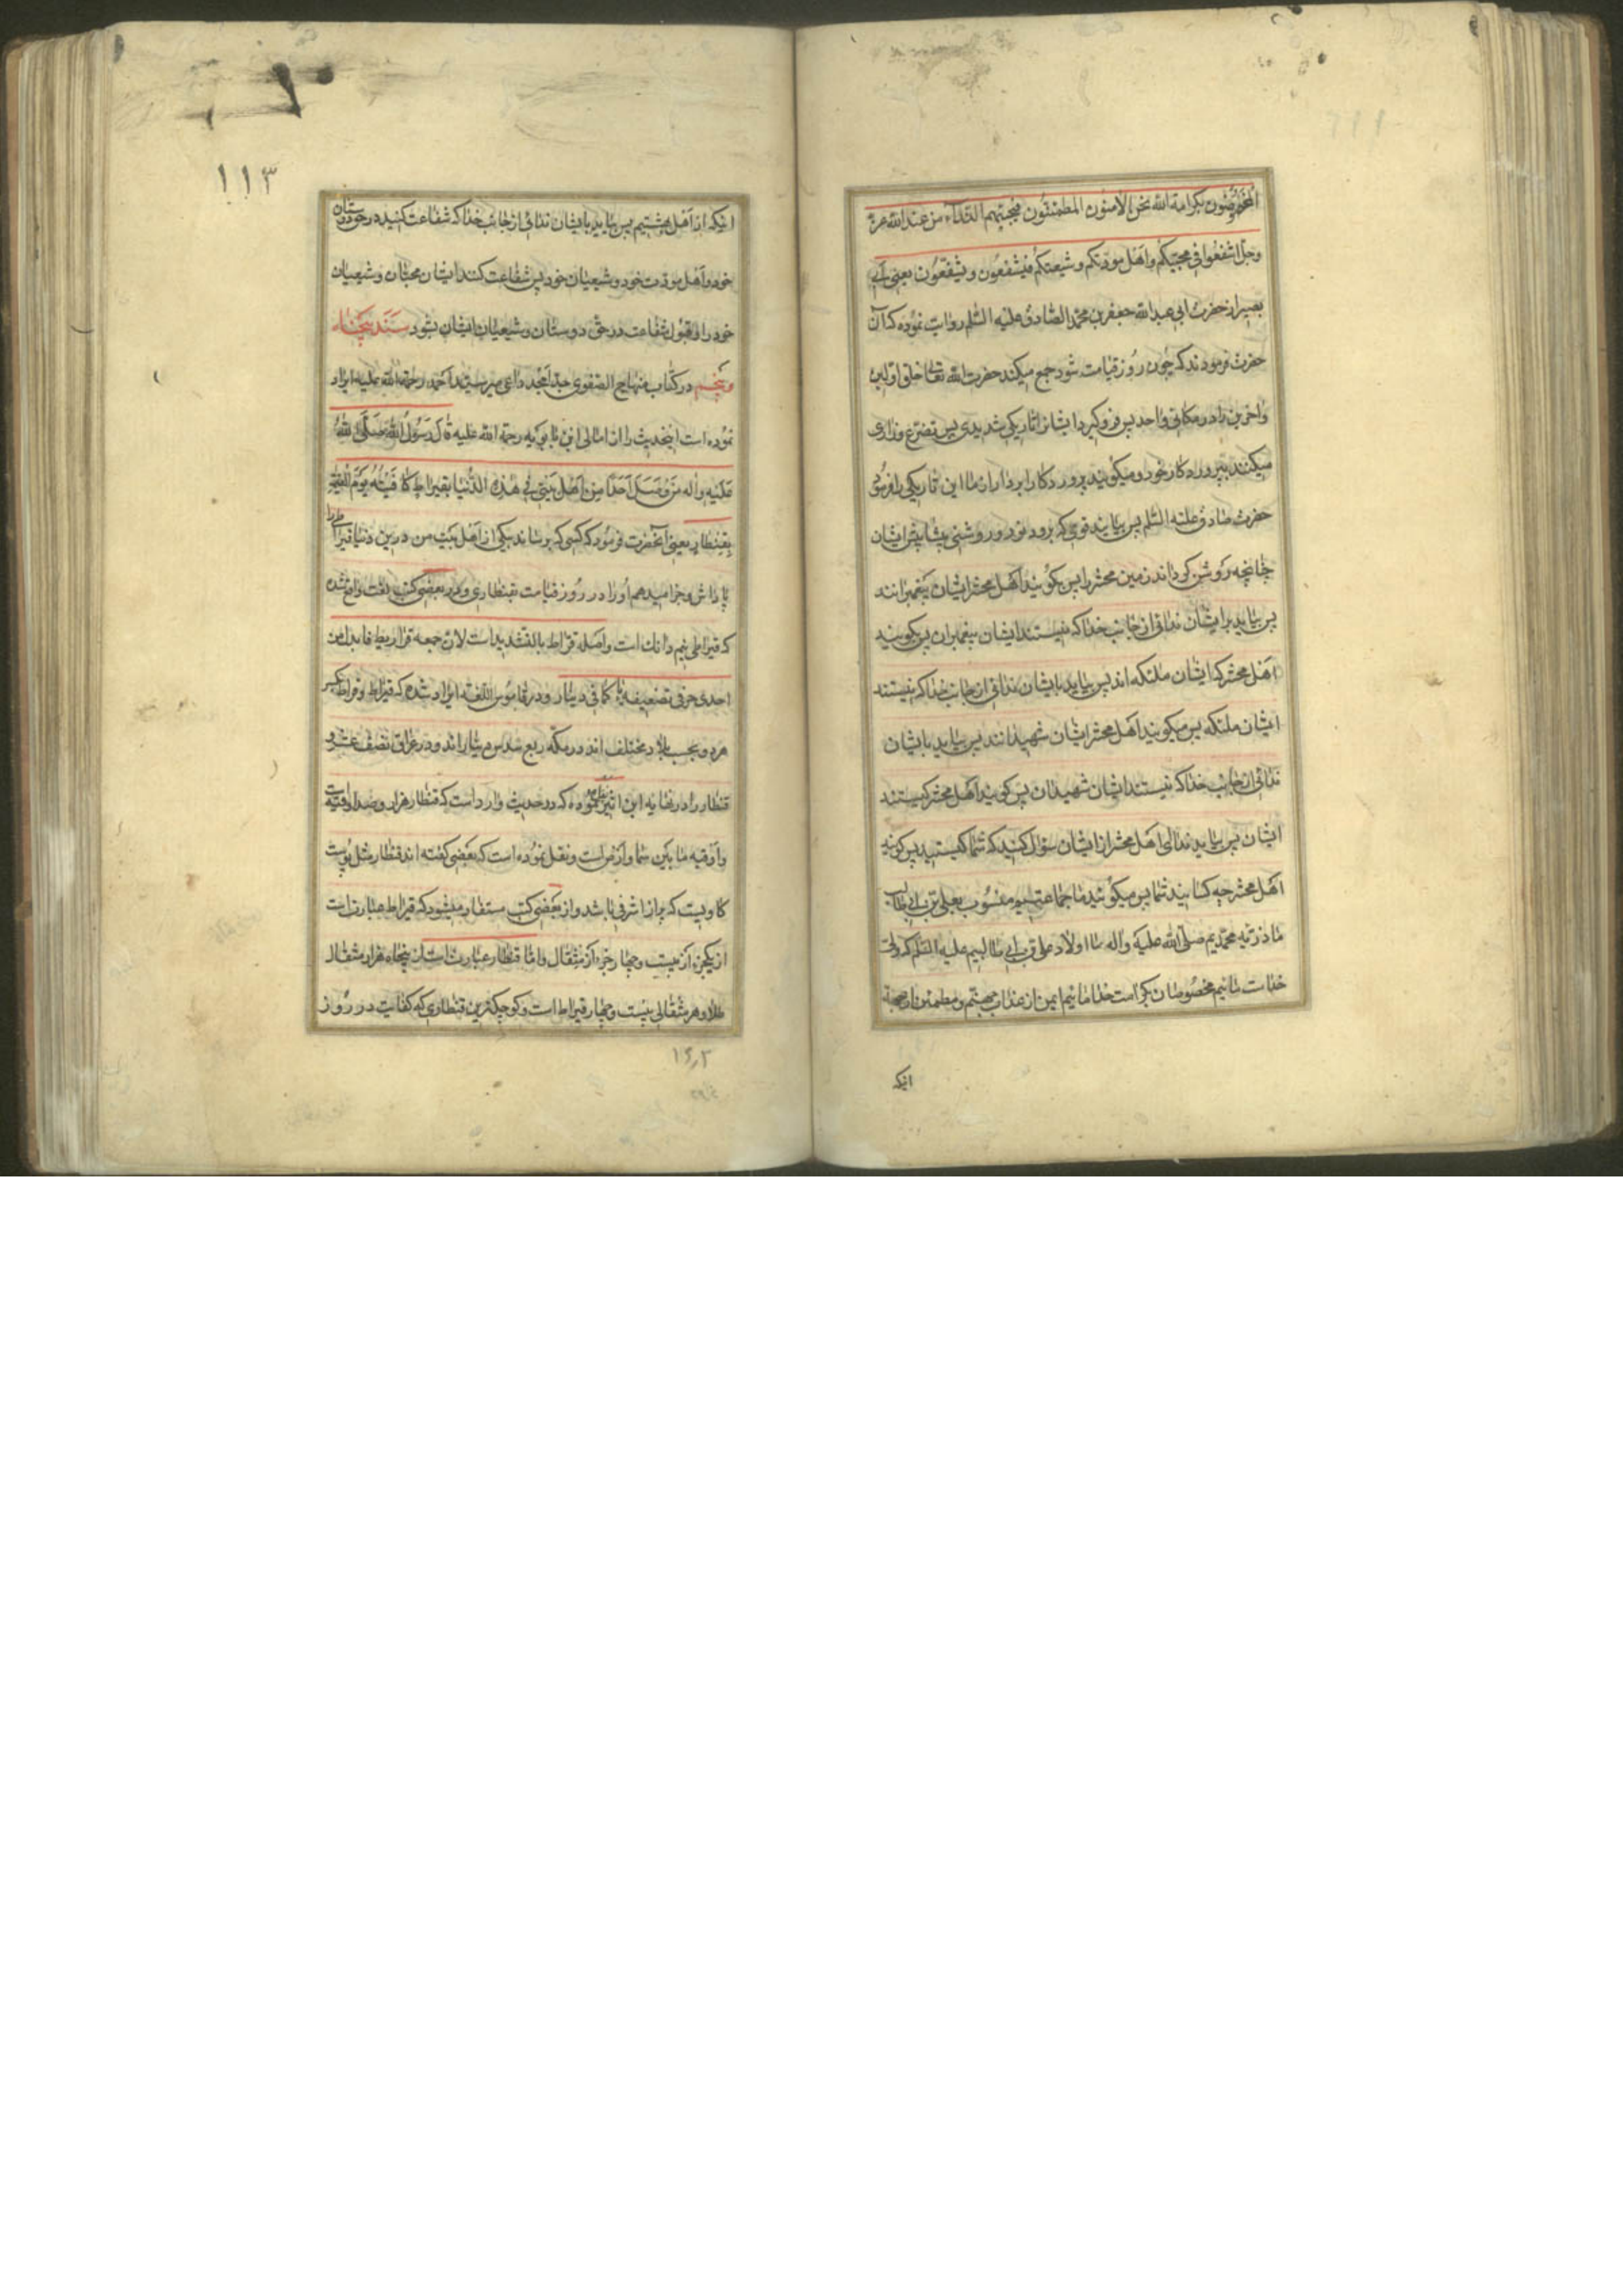 المخصوصون بكرامة الله نحن الآمنون المطمئنون فيجيئهم النداء من عند الله عز
وجل اشفعوا في محبيكم واهل مودتكم وشيعتكم فيشفعون ويشفعون يعنى ابى
بصير از حضرت ابى عبد الله جعفر بن محمد الصادق عليه السلم روايت نموده كه آن
حضرت فرمودند كه چون روز قيامت شود جمع ميكند حضرت الله تعالى خلق اولين
واخرين را در مكانى واحد پس فرو كيرد ايشانرا تاريكى شديدى پس تضرع وزارى
ميكنند بپروردكار خود وميكويند پروردكارا بردار از ما اين تاريكى را فرمود
حضرت صادق عليه السلم پس بيايند قومى كه برود نور و روشنى پيشاپيش ايشان
چنانچه روشن كرداند زمين محشر را پس بكويند اهل محشر ايشان پيغمبرانند
پس بيايد بر ايشان ندائى از جانب خدا كه نيستند ايشان پيغمبران پس بكويند
اهل محشر كه ايشان ملئكه اند پس بيايد بايشان ندائى از جانب خدا كه نيستند
ايشان ملئكه پس ميكويند اهل محشر ايشان شهيدانند پس بيايد بايشان
ندائى از جانب خدا كه نيستند ايشان شهيدان پس كويند اهل محشر كيستند
ايشان پس بيايد ندا اى اهل محشر از ايشان سؤال كنيد كه شما كيستيد پس كويند
اهل محشر چه كسانيد شما پس ميكويند ما جماعتيم منسوب بعلى بن ابى طالب
ما ذريه محمديم صلى الله عليه واله ما اولاد على بن ابى طالبيم عليه السلم كه ولى
خداست مائيم مخصوصان بكرامت خدا مائيم ايمن از عذاب جهنم ومطمئن از جهة
اينكه
١١٣
اينكه از اهل بهشتيم پس بيايد بايشان ندائى از جانب خدا كه شفاعت كنيد در حق دوستان
خود واهل مودت خود وشيعيان خود پس شفاعت كنند ايشان محبان وشيعيان
خود را وقبول شفاعت در حق دوستان وشيعيان ايشان بشود سند پنجاه
وپنجم در كتاب منهاج الصفوى جد امجد داعى مير سيد احمد رحمة الله عليه ايراد
نموده است اينحديث را از امالى ابن بابويه رحمة الله عليه قال رسول الله صلى الله
عليه واله من وصل احدا من اهل بيتى فى هذه الدنيا بقيراط كافيته يوم القيمة
بقنطار يعنى آنحضرت فرمود كه كسى كه برساند بيكى از اهل بيت من در اين دنيا قيراطى را
پاداش وجزا ميدهم او را در روز قيامت بقنطارى ودر بعضى كتب لغت واقع شده
كه قيراط نيم دانك است واصله قراط بالتشديد است لان جمعه قراريط فابدل من
احدى حرفى تضعيفه ياء كما فى دينار ودر قاموس اللغة ايراد شده كه قيراط وقراط بكسر
هر دو بحسب بلاد مختلف اند در مكه ربع سدس ديناراند ودر عراق نصف عشر و
قنطار را در نهايه ابن اثير نموده كه در حديث وارد است كه قنطار هزار وصد اوقيه است
واوقيه ما بين سما وارض است ونقل نموده است كه بعضى كفته اند قنطار مثل پوست
كاويست كه پر از اشرفى باشد واز بعضى كتب مستفاد ميشود كه قيراط عبارت است
از يكجزء از بيست وچهار جزء از مثقال واما قنطار عبارتست از پنجاه هزار مثقال
طلا وهر مثقالى بيست وچهار قيراط است وكوچكترين قنطارى كه كفايت در روز